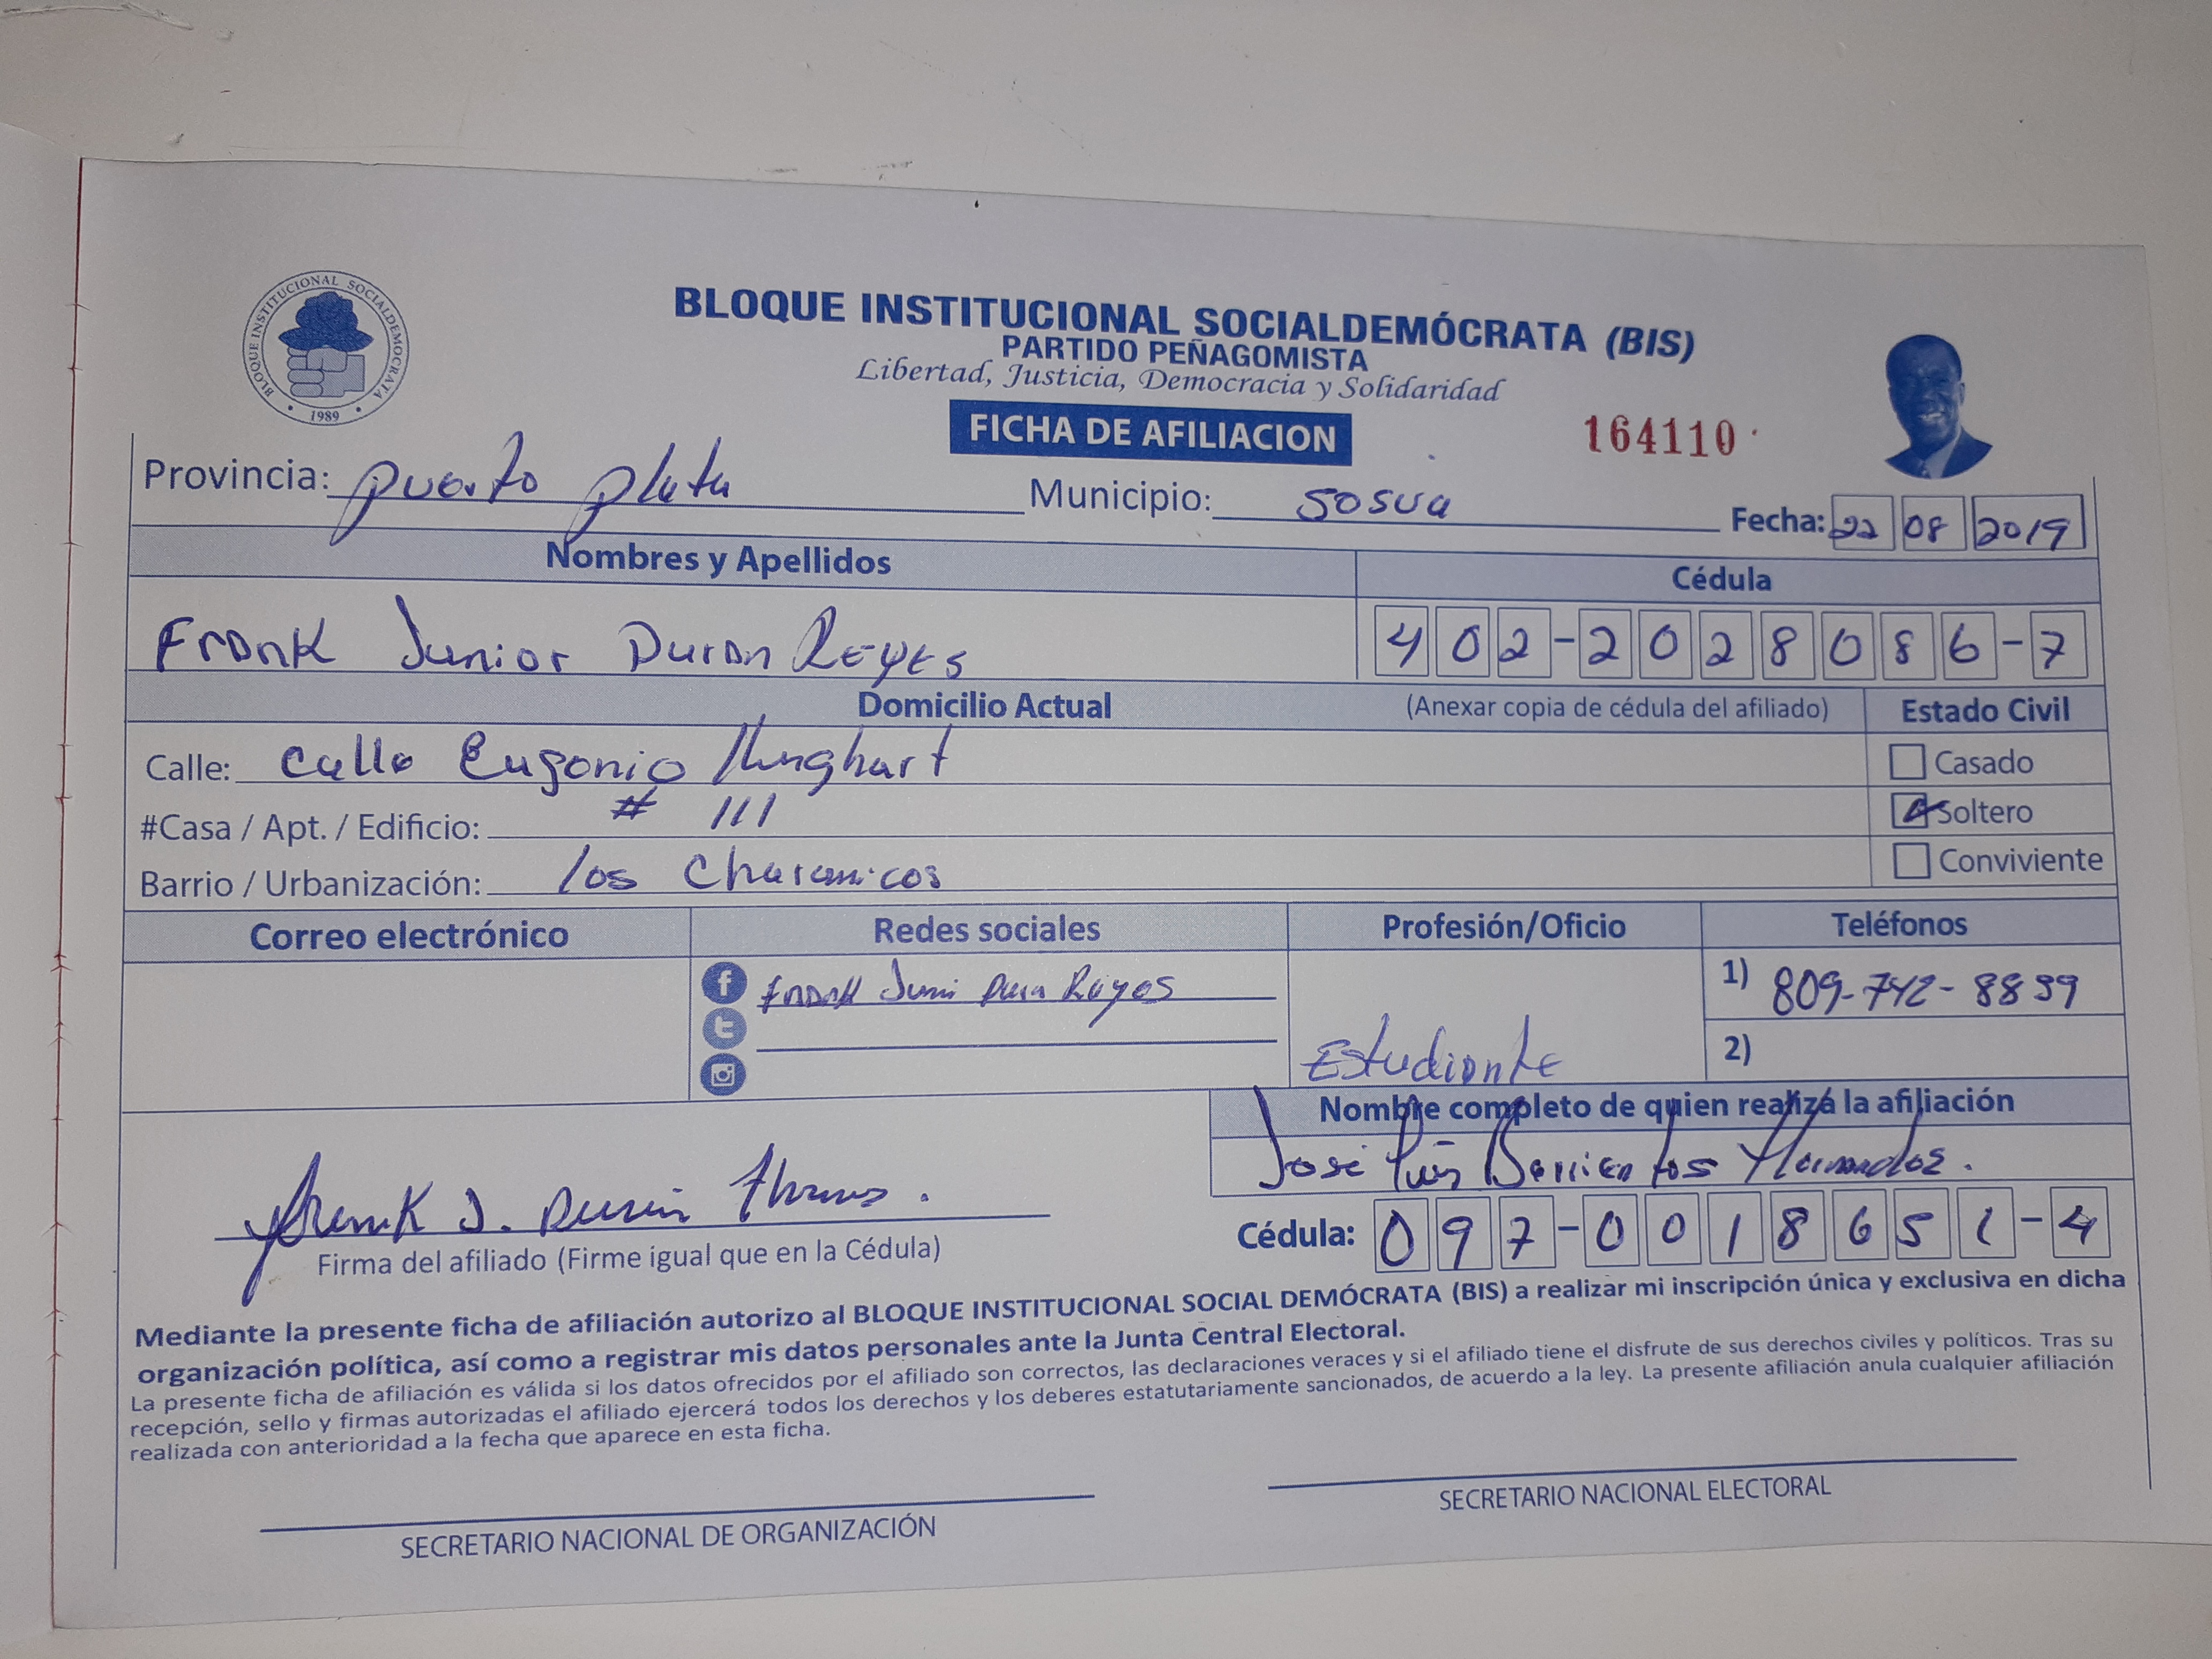 BLOQUE INSTITUCIONAL SOCIALDEMOCRATA
1989
BLOQUE INSTITUCIONAL SOCIALDEMÓCRATA (BIS)
PARTIDO PEÑAGOMISTA
Libertad, Justicia, Democracia y Solidaridad
FICHA DE AFILIACION
164110
Provincia: puerto plata Municipio: SOSUA Fecha: 22 08 2019
Nombres y Apellidos Cédula
Frank Junior Duran Reyes 402-2028086-7
Domicilio Actual (Anexar copia de cédula del afiliado) Estado Civil
Calle: Calle Eugenio Casado
#Casa / Apt. / Edificio: # 111 Soltero
Barrio / Urbanización: los Charamicos Conviviente
Correo electrónico Redes sociales Profesión/Oficio Teléfonos
f Frank Juni Reyes 1) 809-742-8839
Estudiante 2)
Nombre completo de quien realiza la afiliación
José Luis Barrientos
Frank J. Durán
Firma del afiliado (Firme igual que en la Cédula) Cédula: 097-0018651-4
Mediante la presente ficha de afiliación autorizo al BLOQUE INSTITUCIONAL SOCIAL DEMÓCRATA (BIS) a realizar mi inscripción única y exclusiva en dicha
organización política, así como a registrar mis datos personales ante la Junta Central Electoral.
La presente ficha de afiliación es válida si los datos ofrecidos por el afiliado son correctos, las declaraciones veraces y si el afiliado tiene el disfrute de sus derechos civiles y políticos. Tras su
recepción, sello y firmas autorizadas el afiliado ejercerá todos los derechos y los deberes estatutariamente sancionados, de acuerdo a la ley. La presente afiliación anula cualquier afiliación
realizada con anterioridad a la fecha que aparece en esta ficha.
SECRETARIO NACIONAL DE ORGANIZACIÓN SECRETARIO NACIONAL ELECTORAL